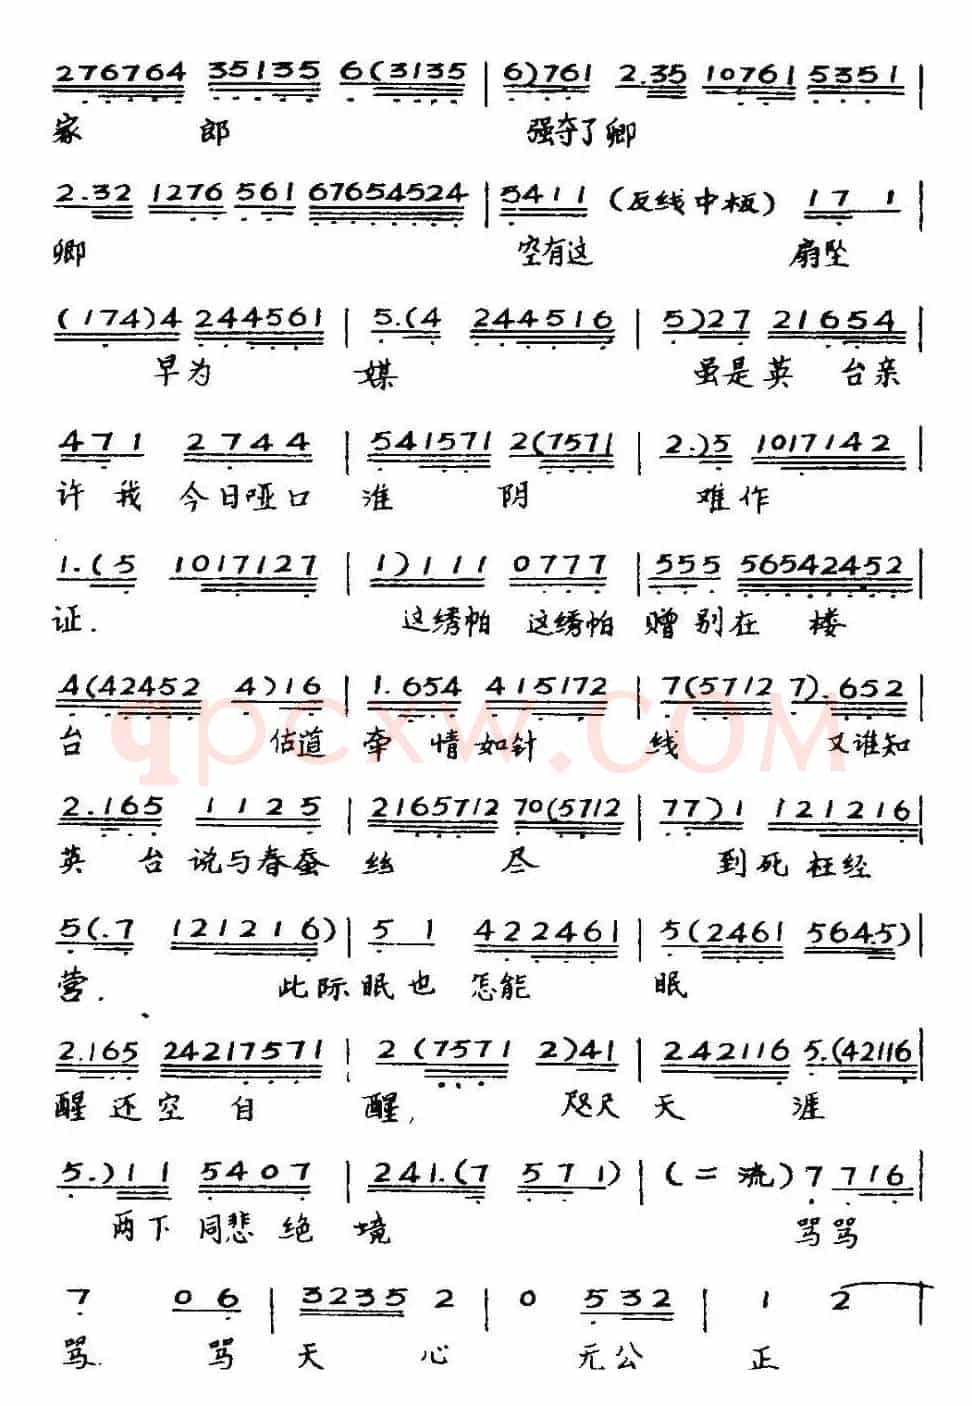 276764 35135 6(3135 | 6)761 2.35 10761 5351 |
家 郎 强夺了卿
2.32 1276 561 67654524 | 5411 (反线中板) 17 1 |
卿 空有这 扇坠
(174)4 244561 | 5.(4 244516 | 5)27 21654 |
早为 媒 虽是英 台亲
471 2744 | 541571 2(7571 | 2.)5 1017142 |
许我 今日哑口 淮 阴 难作
1.(5 1017127 | 1)111 0777 | 555 56542452 |
证. 这绣帕 这绣帕 赠别在 楼
4(42452 4)16 | 1.654 415172 | 7(5712 7).652 |
台 估道 牵 情如针 线 又谁知
qpcxw.COM
2.165 1125 | 2165712 70(5712 | 77)1 121216 |
英 台 说与春蚕 丝 尽 到死枉经
5(.7 121216) | 5 1 422461 | 5(2461 5645) |
营. 此际眠也 怎能 眠
2.165 24217571 | 2(7571 2)41 | 242116 5.(42116 |
醒还空 自 醒, 咫尺 天 涯
5.)11 5407 | 241.(7 571) | (二流)7 716 |
两下 同悲 绝 境 骂骂
7 06 | 3235 2 | 0 532 | 1 2 |
骂. 骂 天 心 无公 正